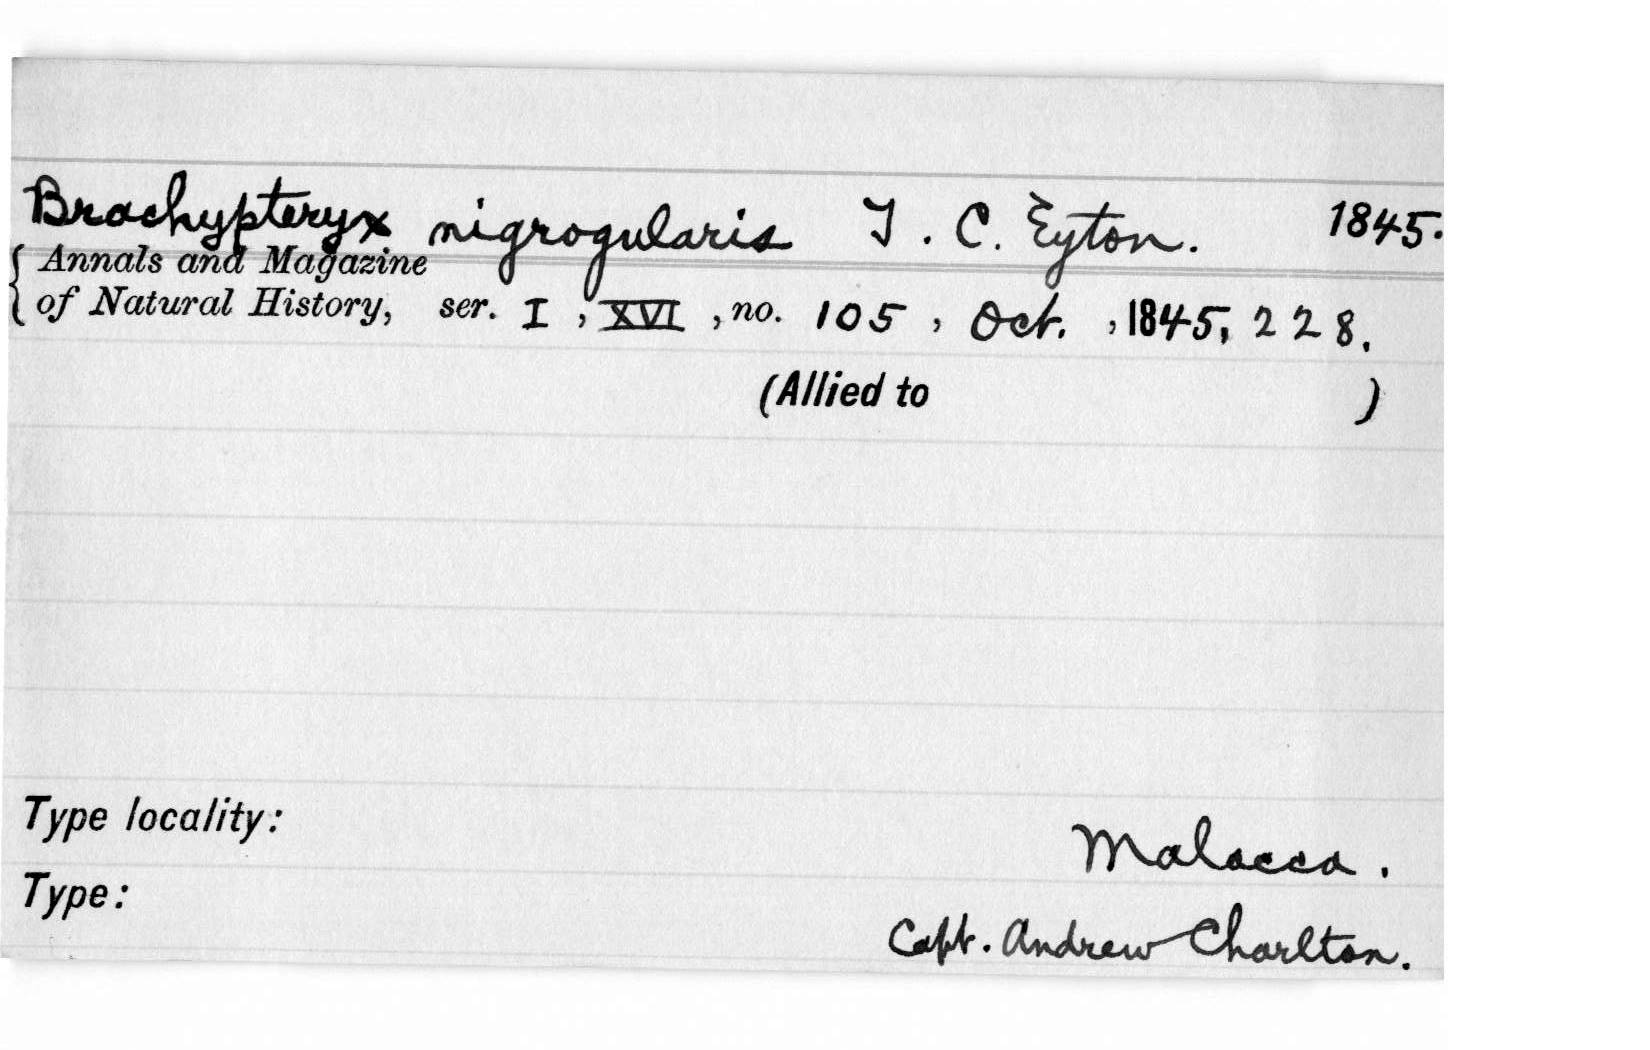 Brachypteryx nigrogularis T. C. Eyton. 1845.
{ Annals and Magazine
of Natural History, ser. I , XVI , no. 105 , Oct. , 1845, 228.
(Allied to )
Type locality:
Malacca.
Type:
Capt. Andrew Charlton.